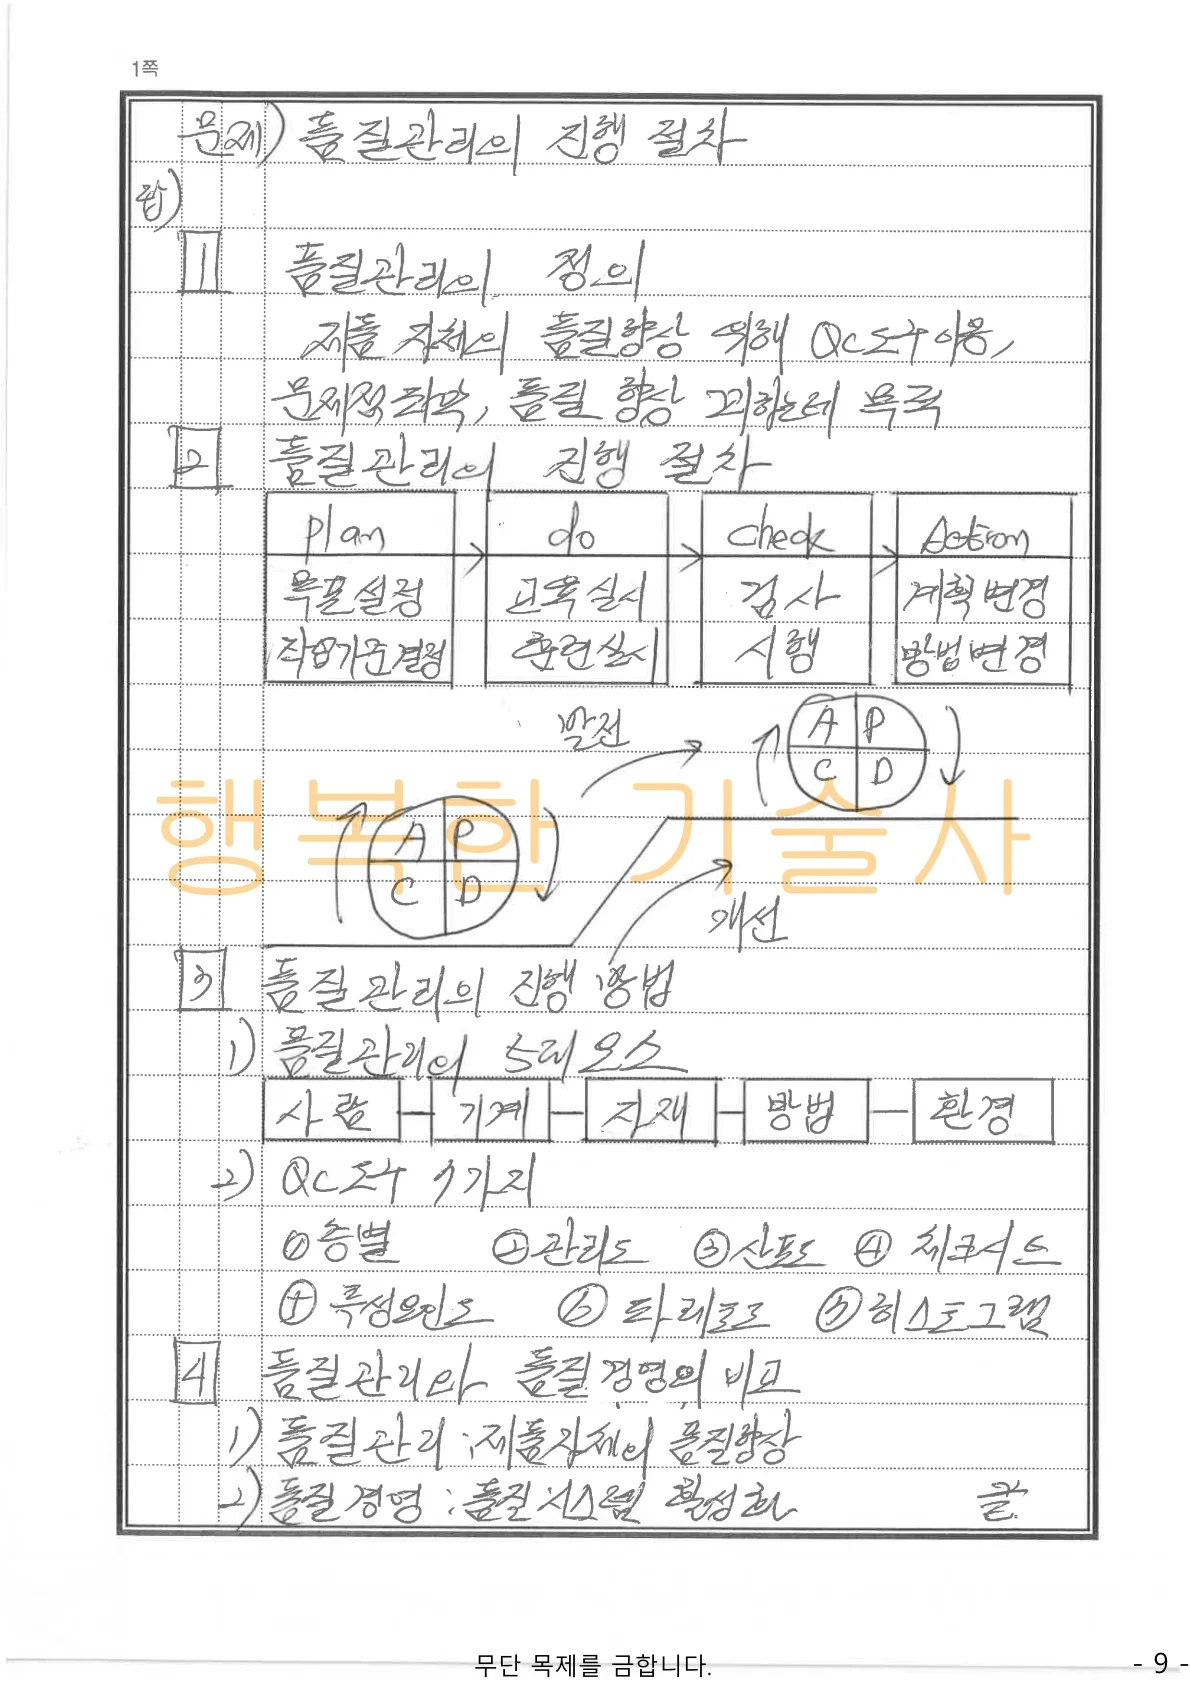 1쪽
문제) 품질관리의 진행 절차
답)
1 품질관리의 정의
제품 자체의 품질향상 위해 QC도구 이용,
문제점 파악, 품질 향상 꾀하는데 목적
2 품질관리의 진행 절차
plan do check Action
목표설정 교육실시 검사 계획변경
작업기준결정 훈련실시 시행 방법변경
발전
A P
C D
행복한 기술사
A P
C D
개선
3 품질관리의 진행 방법
1) 품질관리의 5대 요소
사람 기계 자재 방법 환경
2) QC도구 7가지
① 층별 ② 관리도 ③ 산포도 ④ 체크시트
특성요인도 ⑥ 파레토도 히스토그램
4 품질관리와 품질경영의 비교
1) 품질관리 : 제품자체의 품질향상
2) 품질경영 : 품질시스템 활성화 끝.
무단 목제를 금합니다.
- 9 -